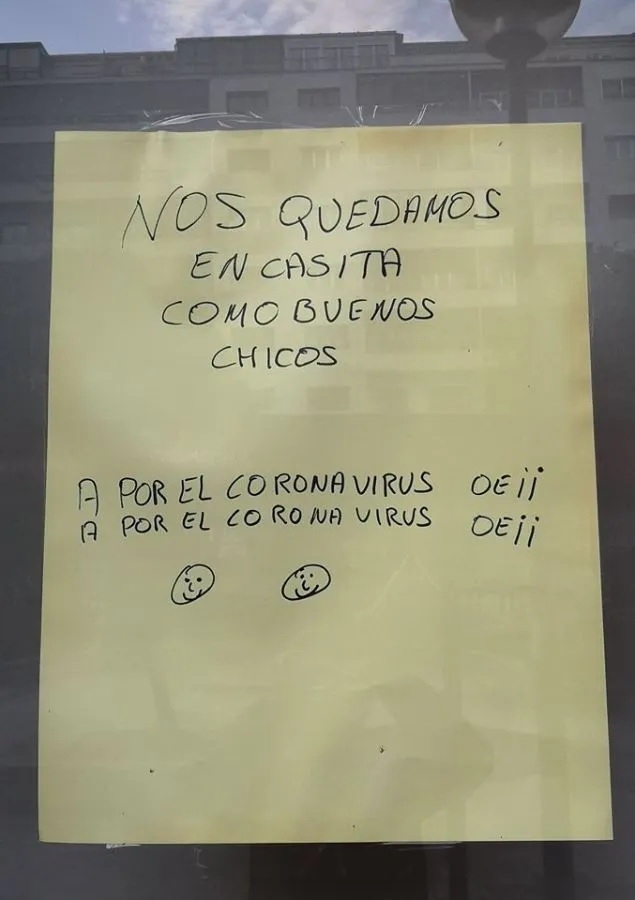 NOS QUEDAMOS
EN CASITA
COMO BUENOS
CHICOS
A POR EL CORONAVIRUS OE¡¡
A POR EL CORONAVIRUS OE¡¡